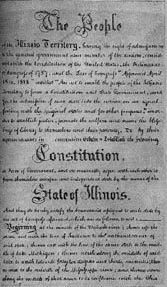 The People
of the Illinois Territory, having the right of admission into
the general government as a member of the union, consis-
tent with the Constitution of the United States, the Ordinance
of Congress of 1787, and the Law of Congress "Approved April
18th, 1818" entitled "An act to enable the people of the Illinois
Territory to form a Constitution and State Government, and
for the admission of such state into the union on an equal
footing with the original states and for other purposes"
in order to establish justice, promote the welfare and secure the bless-
ings of liberty to themselves and their posterity, Do by their
representatives in convention Ordain and Establish the following
Constitution
or Form of Government, and do mutually agree with each other
to form themselves into a free and Independent state by the name of the
State of Illinois.
And they do hereby ratify the boundaries assigned to such state by
the act of Congress aforesaid which are as follows, to wit:
Beginning at the mouth of the Wabash river, thence up the
same, and with the line of Indiana to the northwest corner of
said state, thence east with the line of the same state to the mid-
dle of lake Michigan, thence north along the middle of said
lake to north latitude forty two degrees and thirty minutes, thence
west to the middle of the Mississippi river, and thence down
along the middle of that river to its confluence with the Ohio